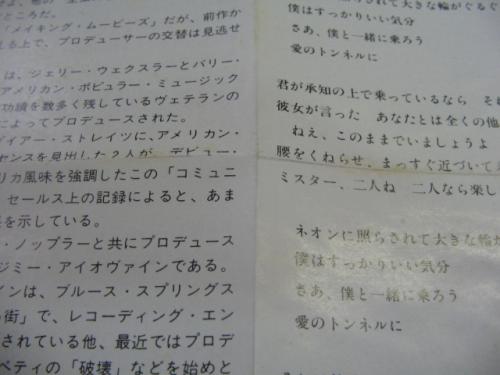 ところだ。
「メイキング・ムービーズ」だが、前作か
える上で、プロデューサーの交替は見逃せ
は、ジェリー・ウェクスラーとバリー・
アメリカン・ポピュラー・ミュージック
功績を数多く残しているヴェテランの
によってプロデュースされた。
イアー・ストレイツに、アメリカン・
センスを見出した2人が、デビュー・
リカ風味を強調したこの「コミュニ
セールス上の記録によると、あま
を示している。
・ノップラーと共にプロデュース
ジミー・アイオヴァインである。
インは、ブルース・スプリングス
街」で、レコーディング・エン
されている他、最近ではプロデ
ベティの「破壊」などを始めと
照らされて大きな輪がぐるぐ
僕はすっかりいい気分
さあ、僕と一緒に乗ろう
愛のトンネルに
君が承知の上で乗っているなら それ
彼女が言った あなたとは全くの他
ねえ、このままでいましょうよ
腰をくねらせ、まっすぐ近づいて
ミスター、二人ね 二人なら楽し
ネオンに照らされて大きな輪が
僕はすっかりいい気分
さあ、僕と一緒に乗ろう
愛のトンネルに